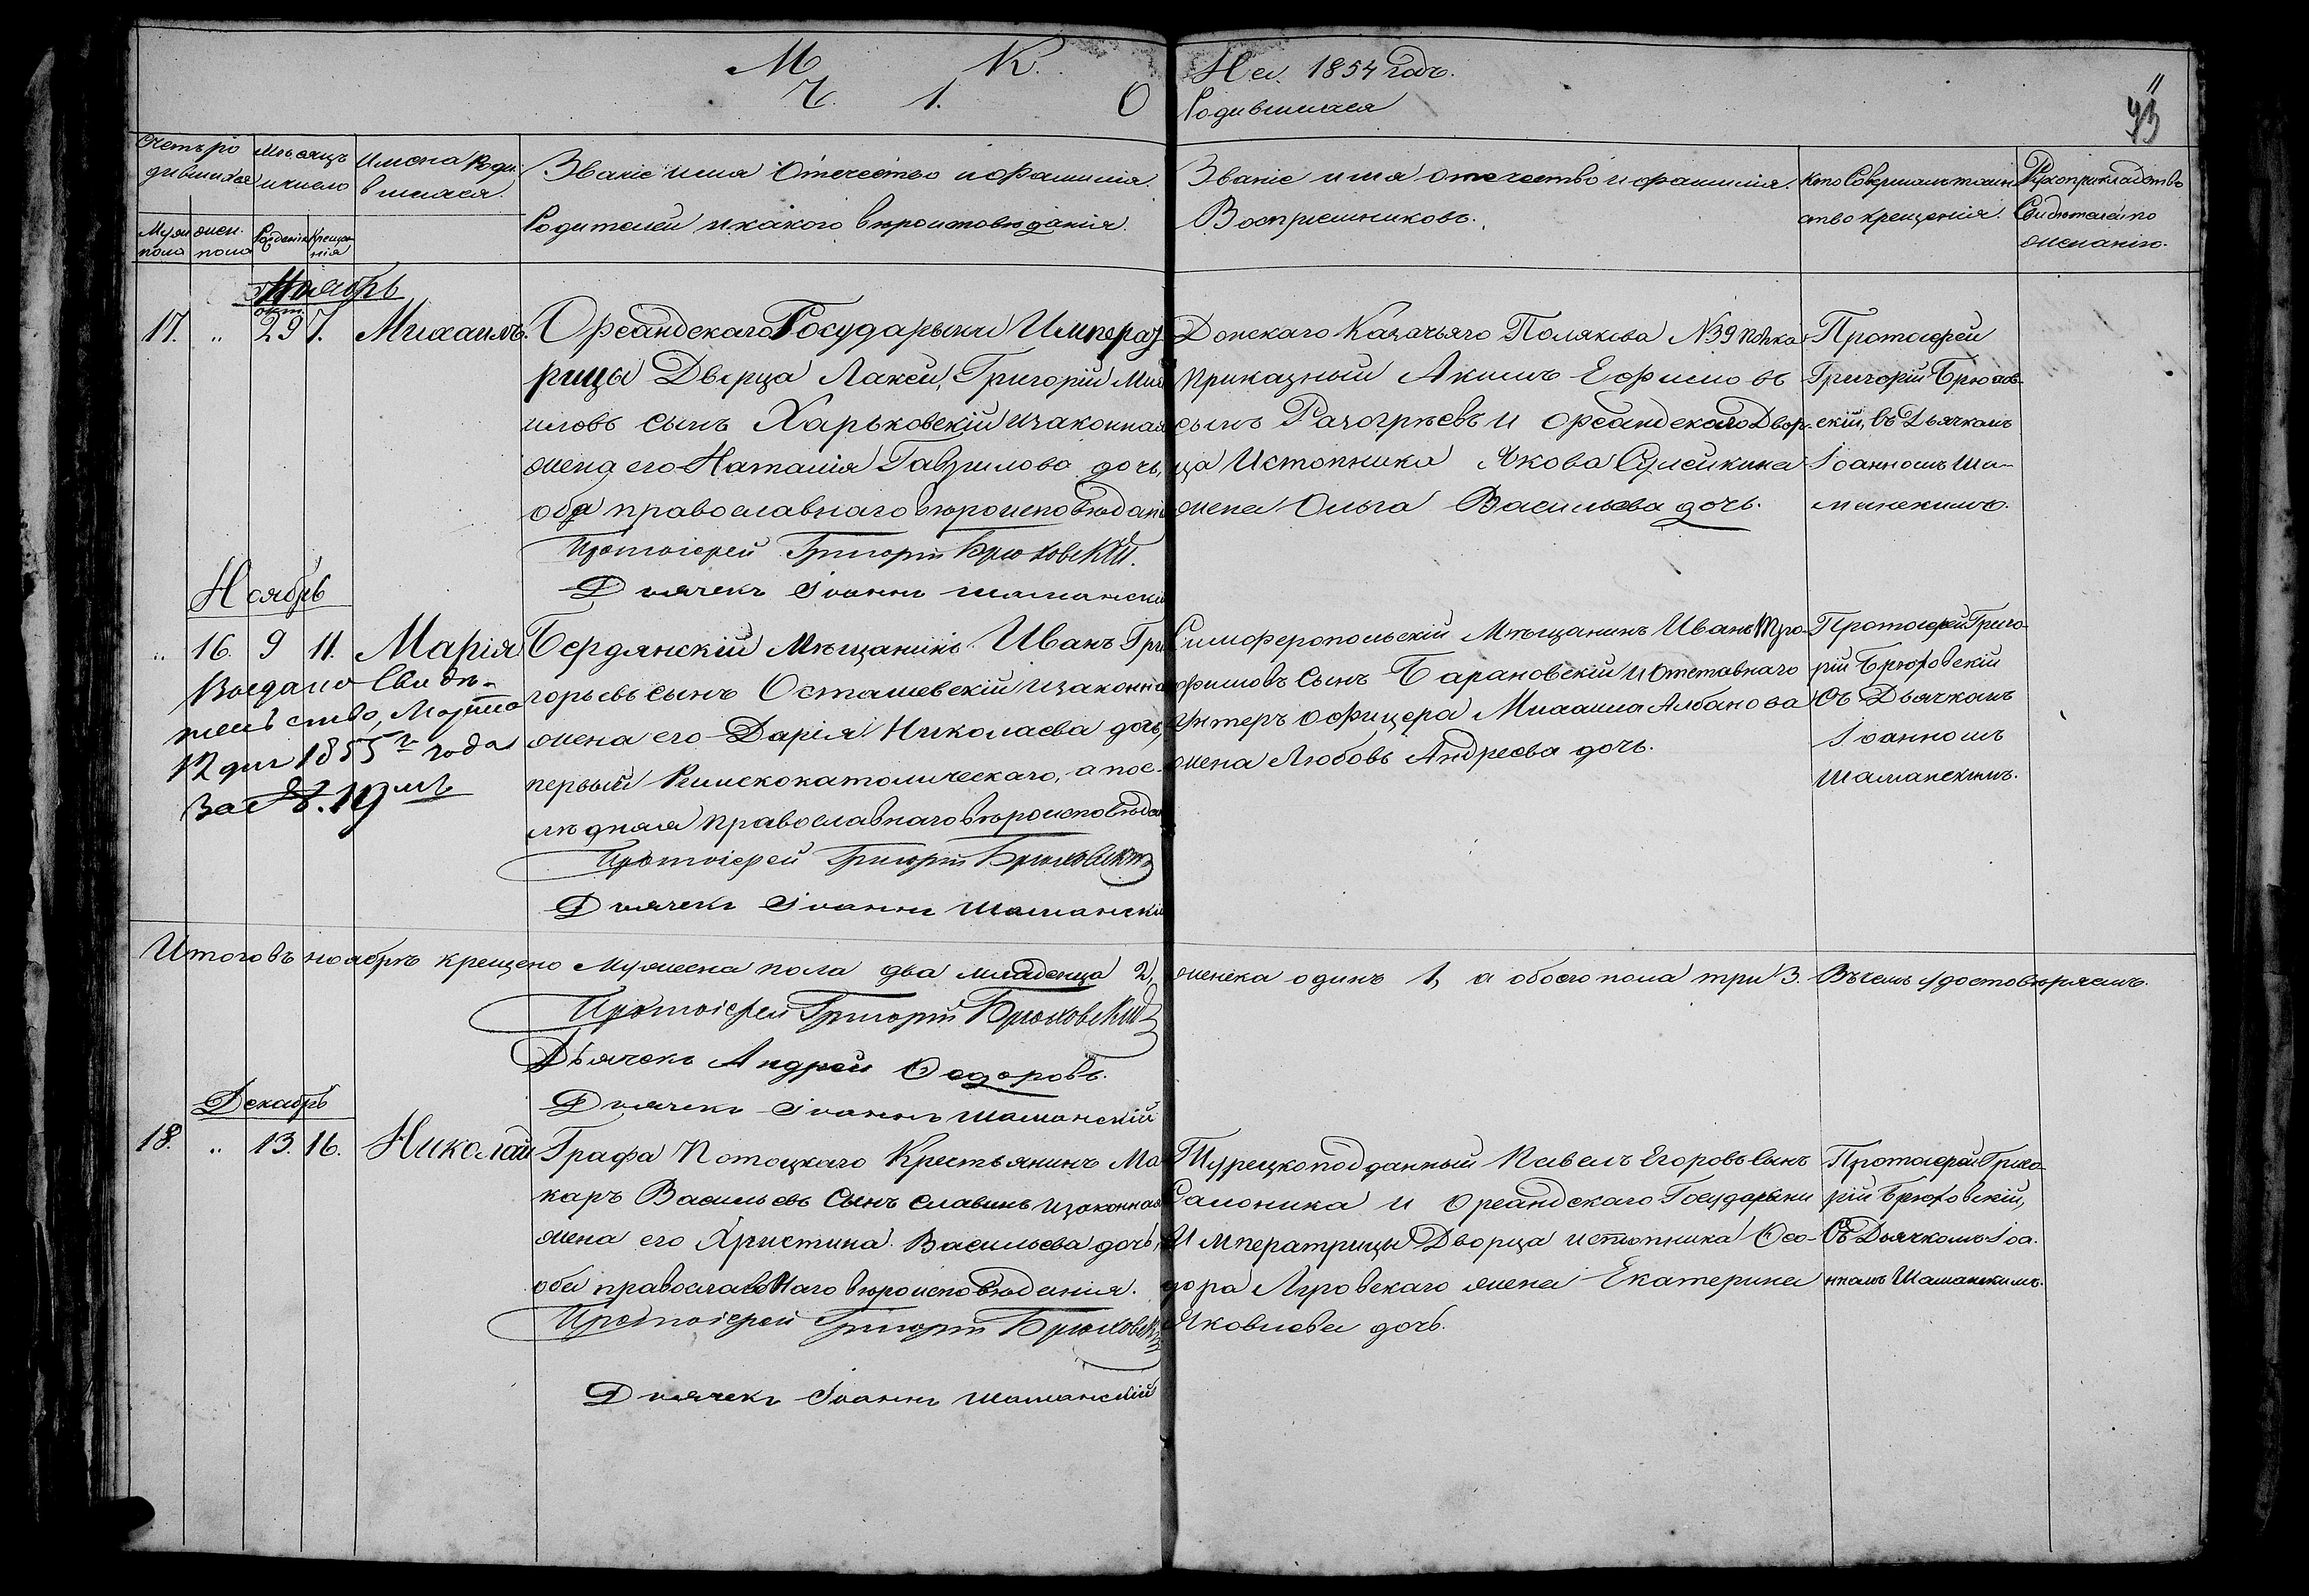 М К. На 1854 годъ.
Ч. 1. О Родившихся
11
93
Счетъ родившихся
Мѣсяцъ и число
Имена Родившихся.
Званіе имя Отечество и фамилія Родителей и какого вѣроисповѣданія.
Званіе имя отечество и фамилія Воспріемниковъ.
Кто Совершалъ таинство крещенія.
Рукоприкладство Свидѣтелей по желанію.
Муж. пола
жен. пола
Рожденія
Крещенія
Ноябрь
окт.
17. " 29 7. Михаилъ.
Ореандскаго Государыни Императ
рицы Дворца Лакей, Григорій Миха
иловъ сынъ Харьковскій и законная
жена его Наталія Гаврилова дочь,
оба православнаго вѣроисповѣдані
Протоіерей Григорій Брюховскій.
Дьячекъ Іоаннъ Шаманскій
Донскаго Казачьяго Полякова №39 полка
приказный Акимъ Ефимовъ
сынъ Рагогрѣевъ и Ореандскаго Двор-
ца Истопника Якова Сулейкина
жена Ольга Васильева дочь.
Протоіерей
Григорій Брюхов-
скій, съ Дьячкомъ
Іоанномъ Ша-
манскимъ.
Ноябрь
" 16. 9 11. Марія
Выдано Свидѣ-
тельство, Марта
12 дня 1855 г. года
За № 19мъ
Бердянскій Мѣщанинъ Иванъ Гри
горьевъ сынъ Осташевскій и законна
жена его Дарія Николаева дочь,
первый Римскокатолическаго, а пос-
лѣдняя православнаго вѣроисповѣда
Протоіерей Григорій Брюховскій
Дьячекъ Іоаннъ Шаманскій
Симферопольскій Мѣщанинъ Иванъ Тро-
фимовъ сынъ Барановскій и Отставнаго
Унтеръ офицера Михаила Албанова
жена Любовь Андреева дочь.
Протоіерей Григо-
рій Брюховскій
Съ Дьячкомъ
Іоанномъ
Шаманскимъ.
Итого въ ноябрѣ крещено Мужеска пола два младенца 2, женска одинъ 1, а обоего пола три 3. Въ чемъ удостовѣряемъ.
Протоіерей Григорій Брюховскій
Дьячекъ Андрей Ѳедоровъ.
Дьячекъ Іоаннъ Шаманскій
Декабрь
18. " 13. 16. Николай
Графа Потоцкаго Крестьянинъ Ма
каръ Васильевъ Сынъ Славинъ и законная
жена его Христина Васильева дочь,
оба православнаго вѣроисповѣданія.
Протоіерей Григорій Брюховскій
Дьячекъ Іоаннъ Шаманскій
Турецкоподданный Павелъ Егоровъ Сынъ
Салоника и Ореандскаго Государыни
Императрицы Дворца истопника Ѳео-
дора Яровскаго жена Екатерина
Яковлева дочь.
Протоіерей Григо-
рій Брюховскій,
Съ Дьячкомъ Іоа-
нномъ Шаманскимъ.